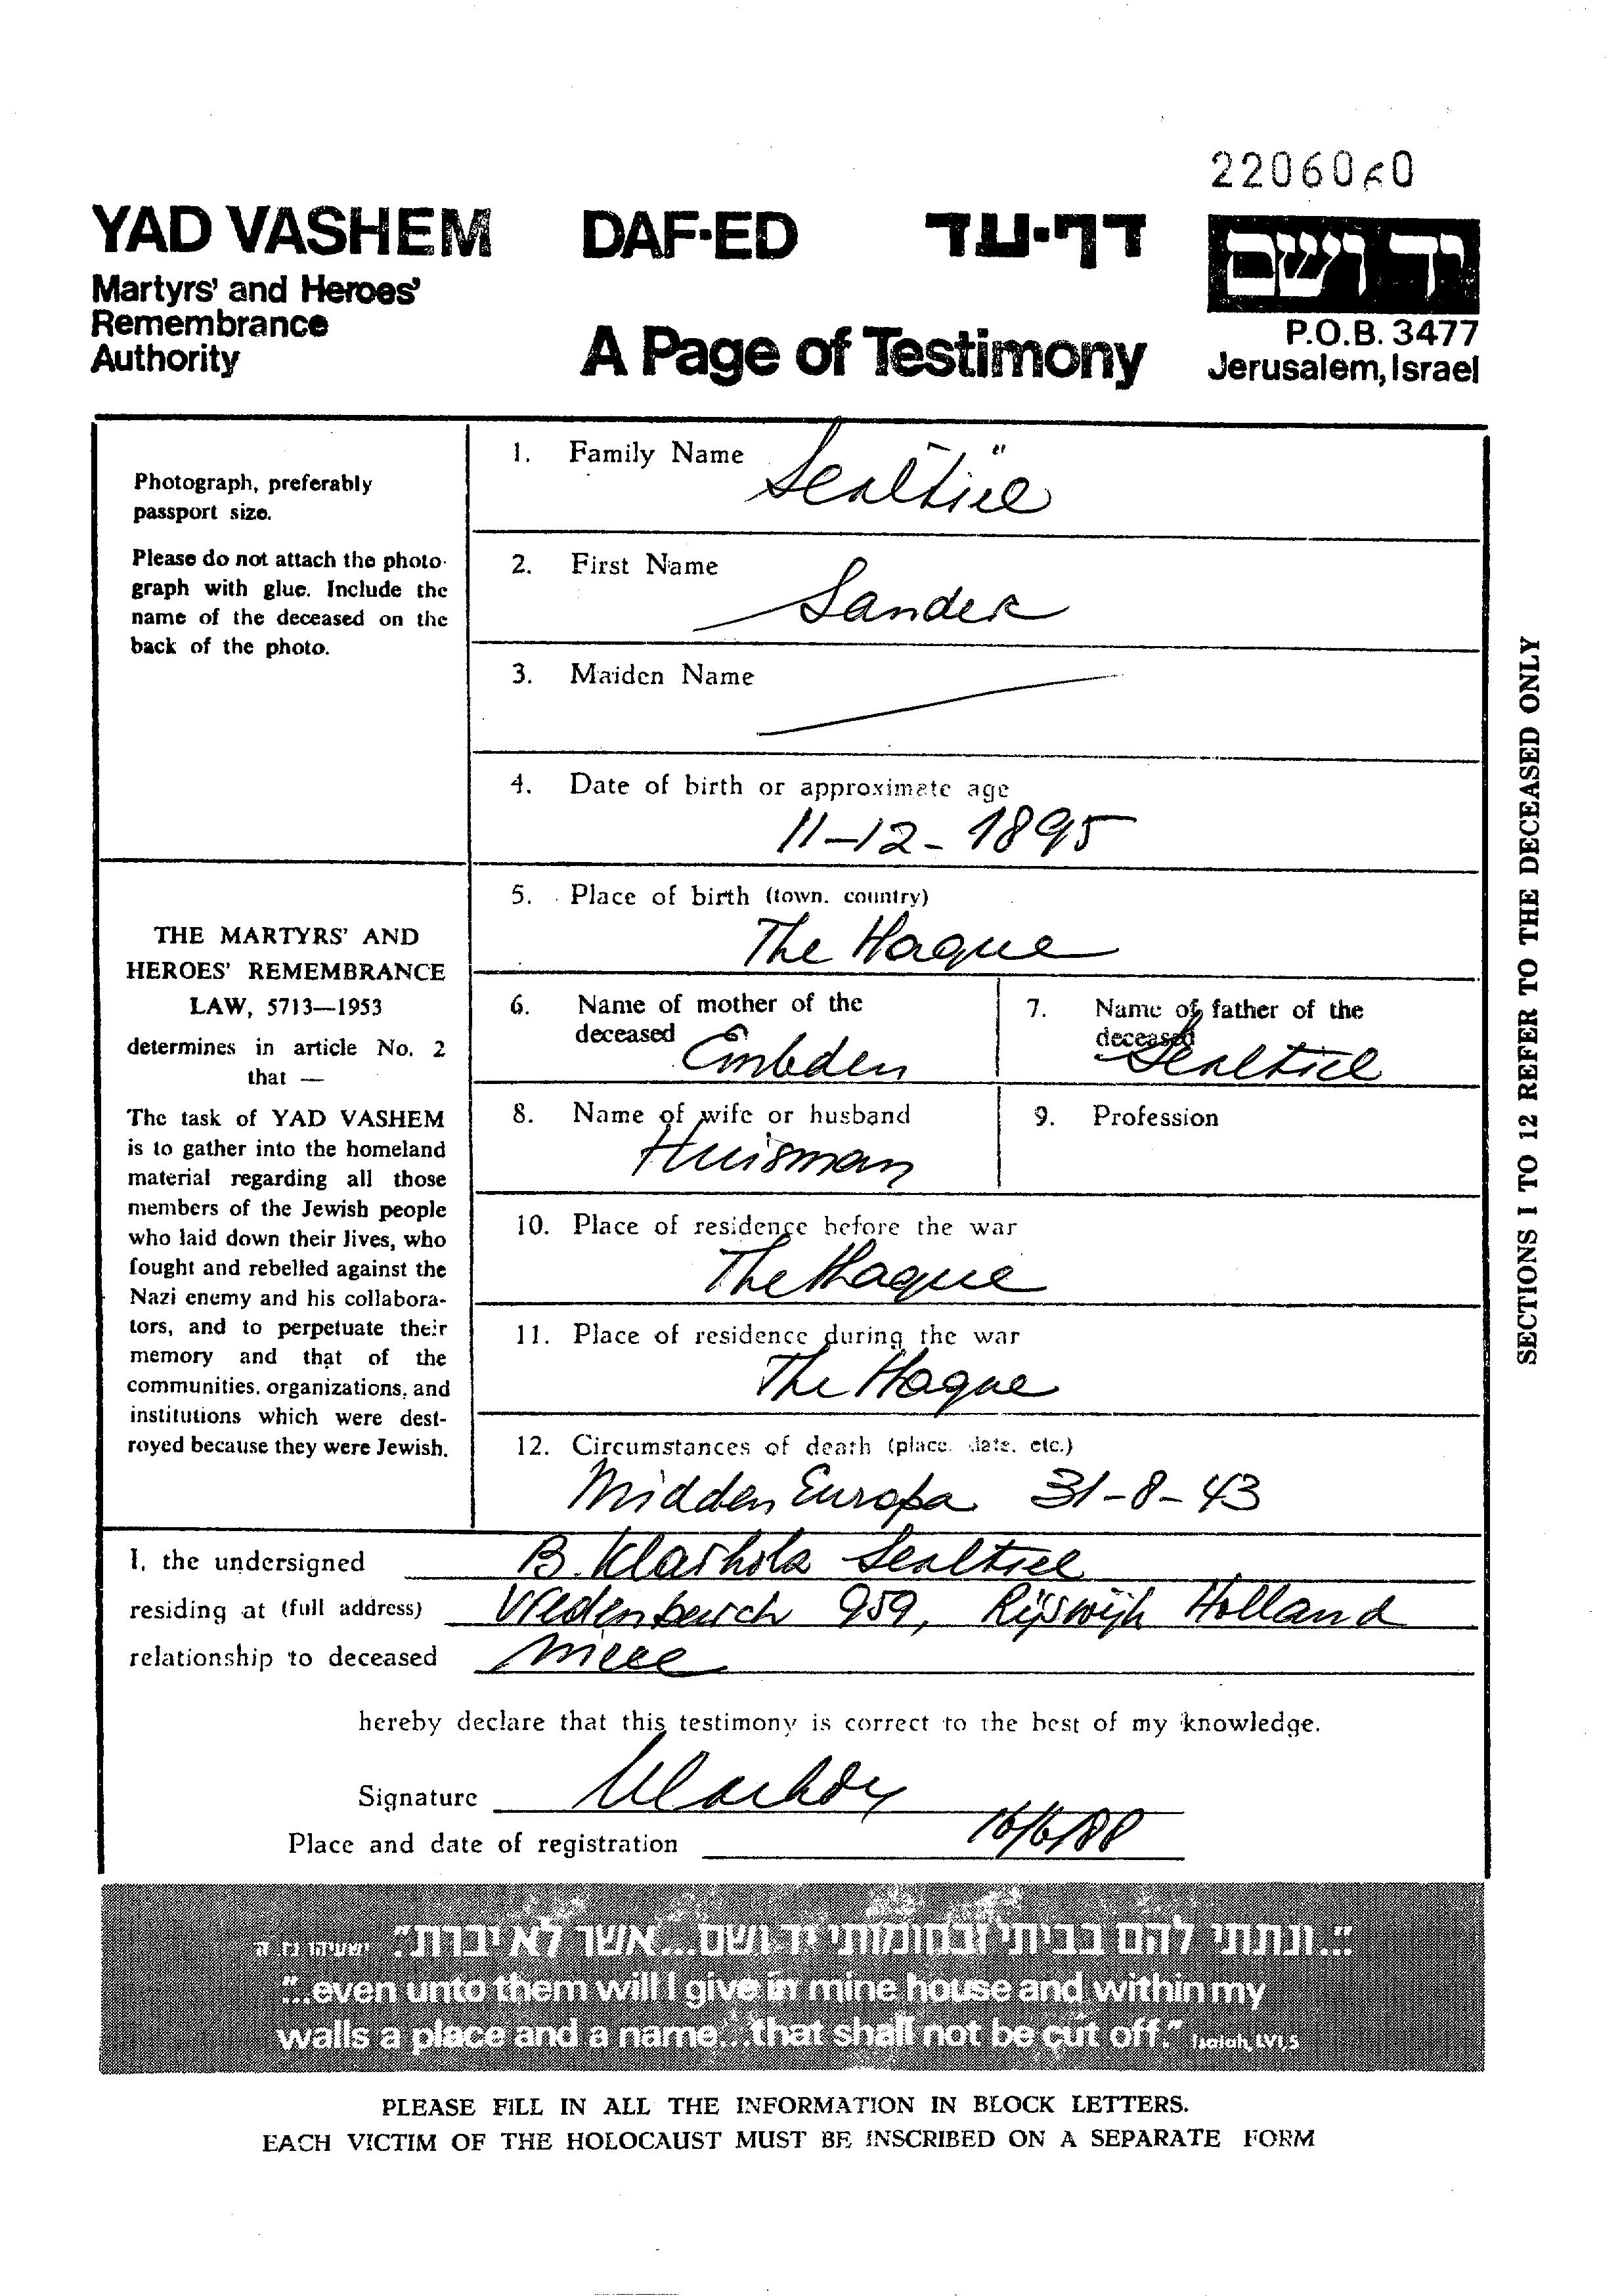 2206060
YAD VASHEM DAF-ED דף-עד ידושם
Martyrs' and Heroes'
Remembrance
Authority
A Page of Testimony
P.O.B. 3477
Jerusalem, Israel
Photograph, preferably
passport size.
Please do not attach the photo-
graph with glue. Include the
name of the deceased on the
back of the photo.
THE MARTYRS' AND
HEROES' REMEMBRANCE
LAW, 5713—1953
determines in article No. 2
that —
The task of YAD VASHEM
is to gather into the homeland
material regarding all those
members of the Jewish people
who laid down their lives, who
fought and rebelled against the
Nazi enemy and his collabora-
tors, and to perpetuate their
memory and that of the
communities, organizations, and
institutions which were dest-
royed because they were Jewish.
1. Family Name Sealtiël
2. First Name
Sander
3. Maiden Name
4. Date of birth or approximate age
11-12-1895
5. Place of birth (town, country)
The Hague
6. Name of mother of the
deceased Embden
7. Name of father of the
deceased Sealtiel
8. Name of wife or husband
Huisman
9. Profession
10. Place of residence before the war
The Hague
11. Place of residence during the war
The Hague
12. Circumstances of death (place, date, etc.)
Midden Europa 31-8-43
I, the undersigned B. Sealtiel
residing at (full address) 959, Rijswijk Holland
relationship to deceased niece
hereby declare that this testimony is correct to the best of my knowledge.
Signature
Place and date of registration 16/6/88
SECTIONS 1 TO 12 REFER TO THE DECEASED ONLY
"...ונתתי להם בביתי ובחומותי יד ושם...אשר לא יכרת" ישעיהו נו, ה
"...even unto them will I give in mine house and within my
walls a place and a name...that shall not be cut off." Isaiah, LVI, 5
PLEASE FILL IN ALL THE INFORMATION IN BLOCK LETTERS.
EACH VICTIM OF THE HOLOCAUST MUST BE INSCRIBED ON A SEPARATE FORM